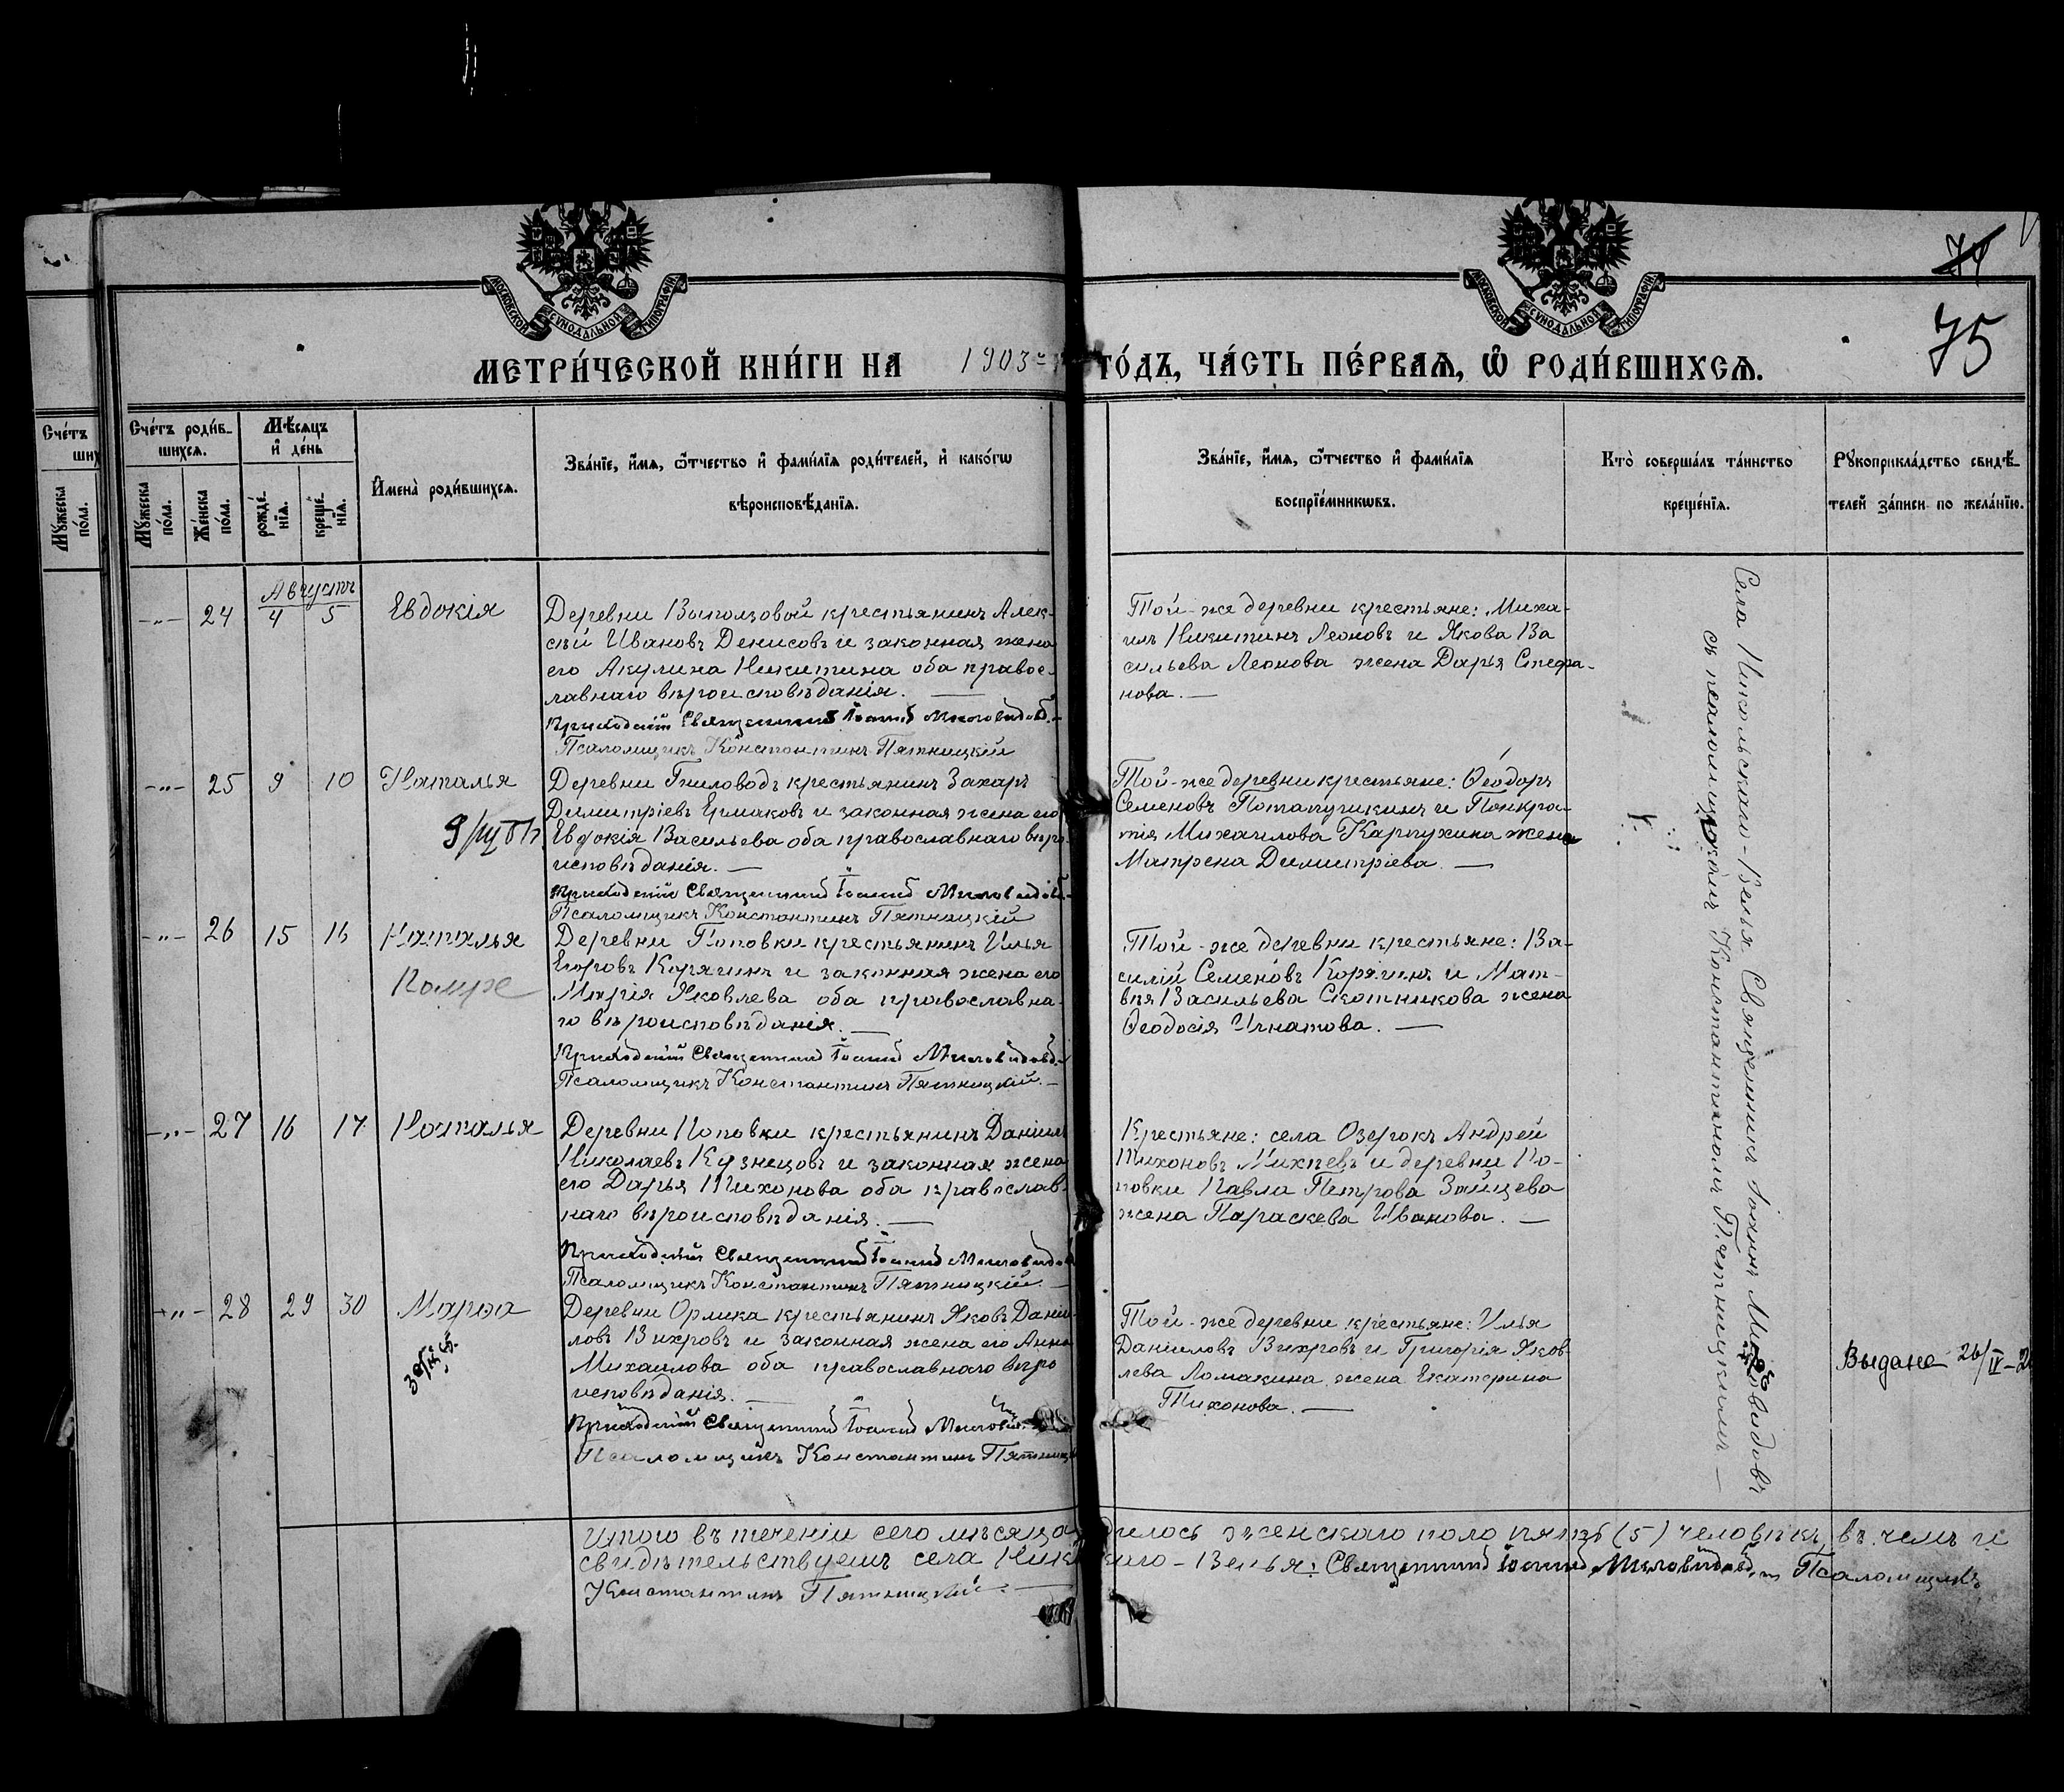 74
75
МОСКОВСКОЙ СѴНОДАЛЬНОЙ ТИПОГРАФІИ
МОСКОВСКОЙ СѴНОДАЛЬНОЙ ТИПОГРАФІИ
МЕТРИ́ЧЕСКОЙ КНИ́ГИ НА 1903 ГО́ДЪ, ЧА́СТЬ ПЕ́РВАѦ, Ѿ РОДИ́ВШИХСѦ.
Сче́тъ
ших
Мꙋжеска
по́ла.
Сче́тъ роди́в-
шихсѧ.
Мꙋжеска
по́ла.
Же́нска
по́ла.
Мѣ́сѧцъ
и҆ де́нь
рожде́-
нїѧ.
креще́-
нїѧ.
И҆мена̀ роди́вшихсѧ.
Зва́нїе, и҆́мѧ, ѻ҆́тчество и҆ фами́лїѧ роди́телей, и҆ како́гѡ
вѣроисповѣ́данїѧ.
Зва́нїе, и҆́мѧ, ѻ҆́тчество и҆ фами́лїѧ
воспрїе́мникѡвъ.
Кто̀ соверша́лъ та́инство
креще́нїѧ.
Рꙋкоприкла́дство свидѣ́-
телей за́писи по жела́нїю.
Августъ
-„- 24 4 5 Евдокія
Деревни Выползовой крестьянинъ Алек-
сѣй Ивановъ Денисовъ и законная жена
его Акулина Никитина оба правос-
лавнаго вѣроисповѣданія. —
Приходскій Священникъ Іоаннъ Миловидовъ.
Псаломщикъ Константинъ Пятницкій
Той-же деревни крестьяне: Миха-
илъ Никитинъ Леоновъ и Якова Ва
сильева Леонова жена Дарья Стефа-
нова. —
-„- 25 9 10 Наталья
Деревни Гниловодъ крестьянинъ Захаръ
Димитріевъ Ермаковъ и законная жена его
Евдокія Васильева оба православнаго вѣро
исповѣданія. —
Приходскій Священникъ Іоаннъ Миловидовъ
Псаломщикъ Константинъ Пятницкій
Той-же деревни крестьяне: Ѳеодоръ
Семеновъ Потапушкинъ и Понкра-
тія Михаилова Карпухина жена
Матрена Димитріева. —
-„- 26 15 16 Наталья
Деревни Поповки крестьянинъ Илья
Егоровъ Корягинъ и законная жена его
Марія Яковлева оба православна-
го вѣроисповѣданія. —
Приходскій Священникъ Іоаннъ Миловидовъ.
Псаломщикъ Константинъ Пятницкій. —
Той-же деревни крестьяне: Ва-
силій Семеновъ Корягинъ и Мат-
вѣя Васильева Скотникова жена
Ѳеодосія Игнатова. —
-„- 27 16 17 Наталья
Деревни Поповки крестьянинъ Даніилъ
Николаевъ Кузнецовъ и законная жена
его Дарья Тихонова оба православ-
наго вѣроисповѣданія. —
Приходскій Священникъ Іоаннъ Миловидовъ
Псаломщикъ Константинъ Пятницкій. —
Крестьяне: села Озерокъ Андрей
Тихоновъ Михѣевъ и деревни По-
повки Павла Петрова Зайцева
жена Параскева Иванова. —
-„- 28 29 30 Марѳа
Деревни Орлика крестьянинъ Яковъ Дани-
ловъ Вихровъ и законная жена его Анна
Михаилова оба православнаго вѣро
исповѣданія. —
Приходскій Священникъ Іоаннъ Миловид
Псаломщикъ Константинъ Пятницк
Той-же деревни крестьяне: Илья
Даниловъ Вихровъ и Григорія Яков-
лева Ломакина жена Екатерина
Тихонова. —
Села Никольскаго-Велья Священникъ Іоаннъ Миловидовъ
съ псаломщикомъ Константиномъ Пятницкимъ —
Выдана 26/IV-2
Итого въ теченіи сего мѣсяца дилось женскаго пола пять (5) человѣкъ, въ чемъ и
свидѣтельствуемъ села Ник каго-Велья: Священникъ Іоаннъ Миловидовъ, Псаломщикъ
Константинъ Пятницкій. —